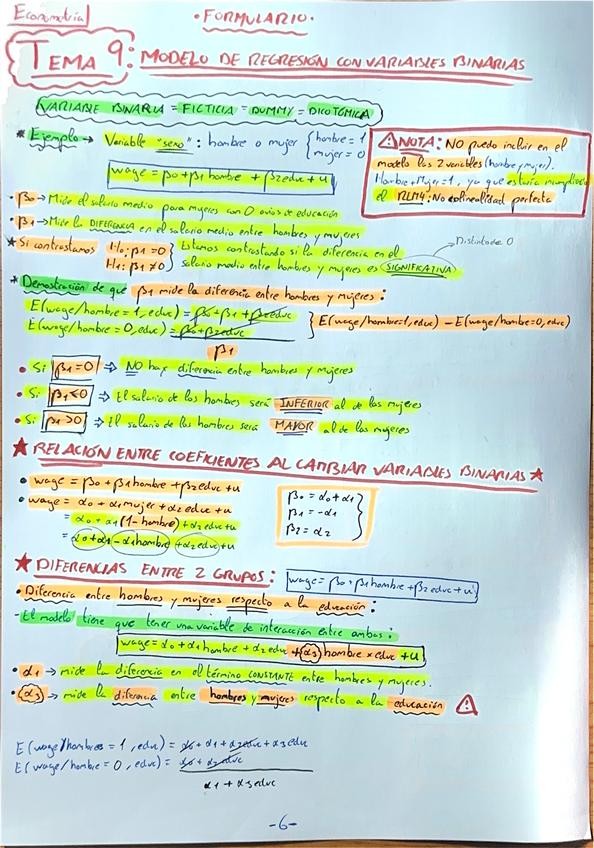 Econometría
· FORMULARIO ·
TEMA 9: MODELO DE REGRESIÓN CON VARIABLES BINARIAS
VARIABLE BINARIA = FICTICIA = DUMMY = DICOTÓMICA
* Ejemplo → Variable "sexo": hombre o mujer { hombre = 1
mujer = 0
wage = β0 + β1 hombre + β2 educ + u
⚠ NOTA: NO puedo incluir en el
modelo las 2 variables (hombre y mujer).
Hombre + Mujer = 1, ya que estaría incumpliendo
el RLM4: No colinealidad perfecta
· β0 → Mide el salario medio para mujeres con 0 años de educación
· β1 → Mide la DIFERENCIA en el salario medio entre hombres y mujeres
★ Si contrastamos H0: β1 = 0 } Estamos contrastando si la diferencia en el
H1: β1 ≠ 0 salario medio entre hombres y mujeres es SIGNIFICATIVA
→ Distinta de 0
* Demostración de que β1 mide la diferencia entre hombres y mujeres:
E(wage/hombre = 1, educ) = β0 + β1 + β2 educ
E(wage/hombre = 0, educ) = β0 + β2 educ } E(wage/hombre=1, educ) − E(wage/hombre=0, educ)
β1
• Si β1 = 0 ⇒ NO hay diferencia entre hombres y mujeres
• Si β1 < 0 ⇒ El salario de los hombres será INFERIOR al de las mujeres
• Si β1 > 0 ⇒ El salario de los hombres será MAYOR al de las mujeres
★ RELACIÓN ENTRE COEFICIENTES AL CAMBIAR VARIABLES BINARIAS ★
• wage = β0 + β1 hombre + β2 educ + u
• wage = α0 + α1 mujer + α2 educ + u
= α0 + α1 (1 − hombre) + α2 educ + u
= α0 + α1 − α1 hombre + α2 educ + u
β0 = α0 + α1
β1 = −α1
β2 = α2
★ DIFERENCIAS ENTRE 2 GRUPOS: wage = β0 + β1 hombre + β2 educ + u
• Diferencia entre hombres y mujeres respecto a la educación:
El modelo tiene que tener una variable de interacción entre ambas:
wage = α0 + α1 hombre + α2 educ + α3 hombre × educ + u
• α1 → mide la diferencia en el término CONSTANTE entre hombres y mujeres.
• α3 → mide la diferencia entre hombres y mujeres respecto a la educación ⚠
E(wage/hombres = 1, educ) = α0 + α1 + α2 educ + α3 educ
E(wage/hombre = 0, educ) = α0 + α2 educ
α1 + α3 educ
-6-